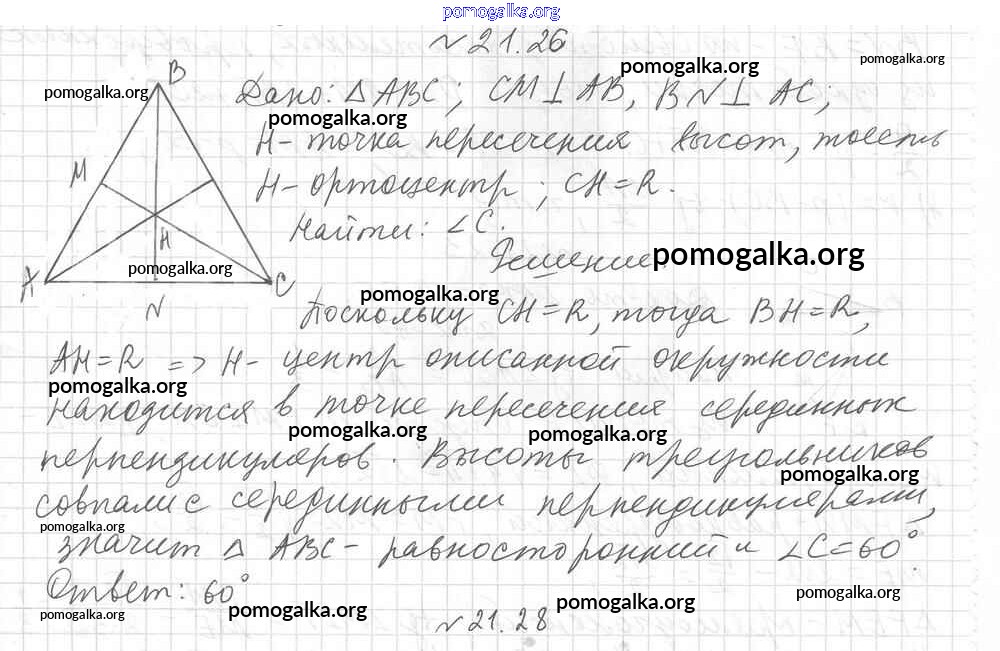 pomogalka.org
№ 21.26
pomogalka.org
pomogalka.org
B
pomogalka.org
Дано: △ ABC, CM ⊥ AB, BN ⊥ AC;
pomogalka.org
H - точка пересечения высот, тоесть
M
H - ортоцентр; CH = R.
Найти: ∠ C.
H
Решение:
pomogalka.org
pomogalka.org
A
C
pomogalka.org
N
Поскольку CH = R, тогда BH = R,
AH = R => H - центр описанной окружности
pomogalka.org
находится в точке пересечения серединных
pomogalka.org
pomogalka.org
перпендикуляров. Высоты треугольников
pomogalka.org
совпали с серединными перпендикулярами,
pomogalka.org
значит △ ABC - равносторонний и ∠ C = 60°.
Ответ: 60°
pomogalka.org
pomogalka.org
pomogalka.org
pomogalka.org
№ 21.28